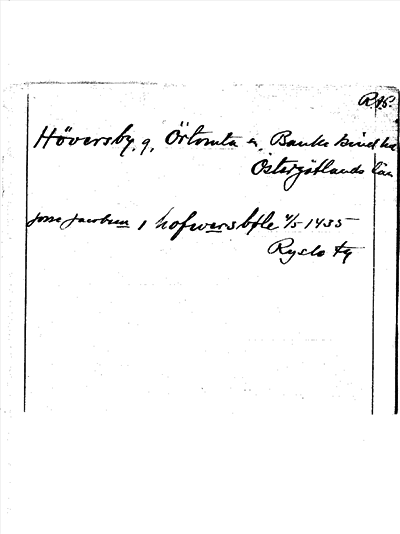 R.A.P.
Höversby, g. Örtomta sn, Bankekinds hd
Östergötlands län
Josse Jacobsen i hofwersbøle 4/5 1435
Ryslo ty